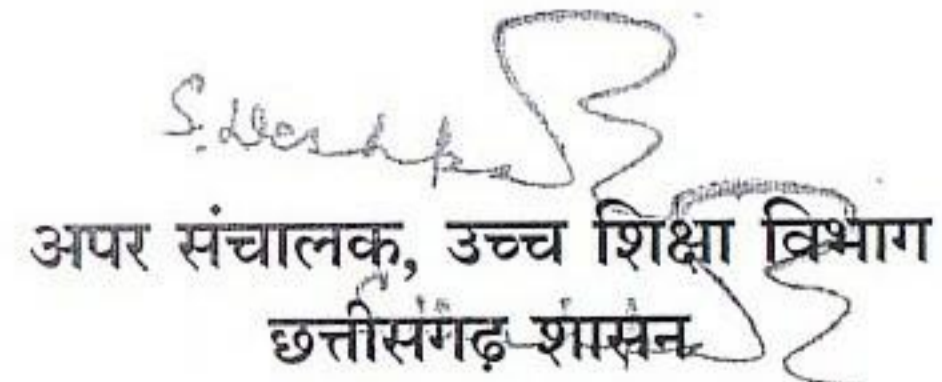 अपर संचालक, उच्च शिक्षा विभाग
छत्तीसगढ़ शासन